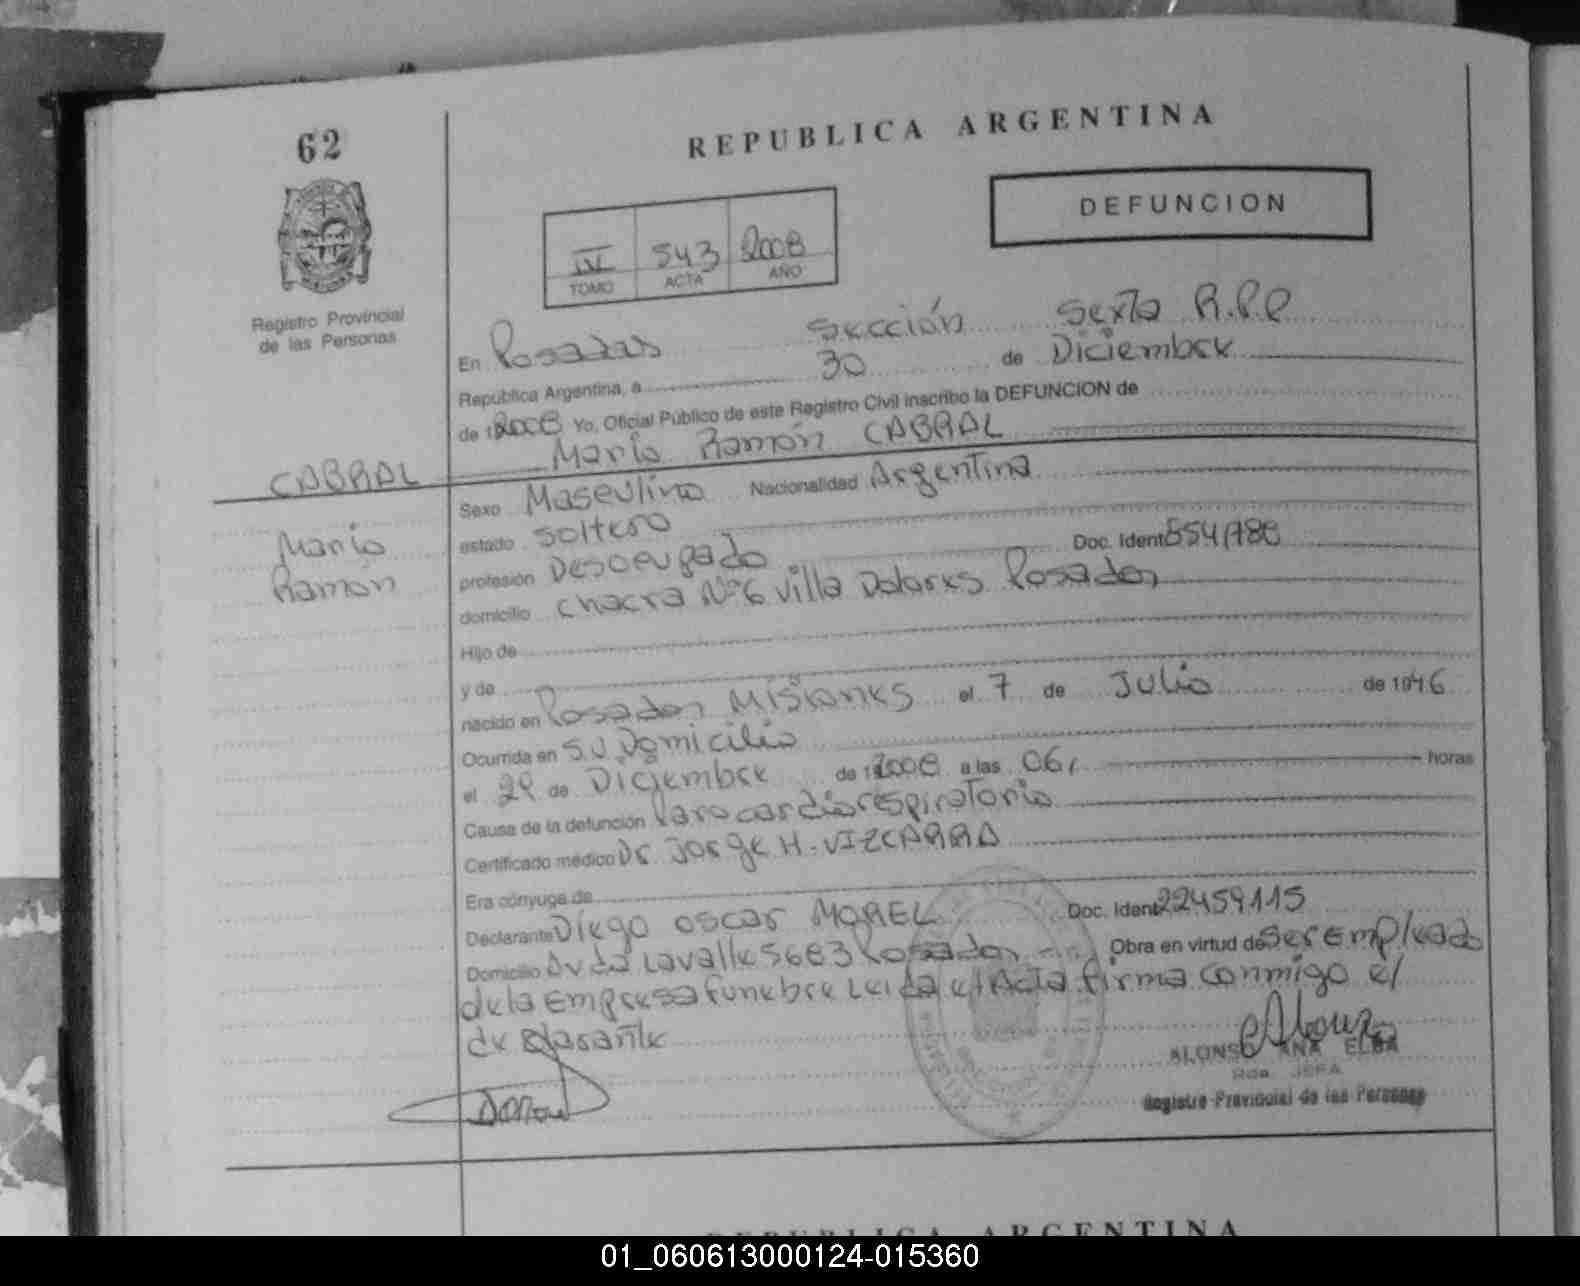 62
REPUBLICA ARGENTINA
DEFUNCION
IV 543 2008
TOMO ACTA AÑO
Registro Provincial
de las Personas
En Posadas Sección Sexta R.P.P
República Argentina, a 30 de Diciembre
de 12008 Yo, Oficial Público de este Registro Civil inscribo la DEFUNCION de
Mario Ramón CABRAL
CABRAL
Mario
Ramón
Sexo Masculino Nacionalidad Argentina
estado Soltero
profesión Desocupado Doc. Ident
domicilio chacra Nº6 Villa Dolores Posadas
Hijo de
y de
nacido en Posadas Misiones el 7 de Julio de 1946
Ocurrida en su Domicilio
el 29 de Diciembre de 12008 a las 06, horas
Causa de la defunción Parocardiorespiratorio
Certificado médico Dr. Jorge H. VIZCARRA
Era cónyuge de
Declarante Diego Oscar MOREL Doc. Ident 22459115
Domicilio Avda Lavalle 5683 Posadas Obra en virtud de ser Empleado
de la Empresa funebre Leida el Acta firma conmigo el
ALONSO ANA ELBA
JEFA
Registro Provincial de las Personas
REPUBLICA ARGENTINA
01_060613000124-015360